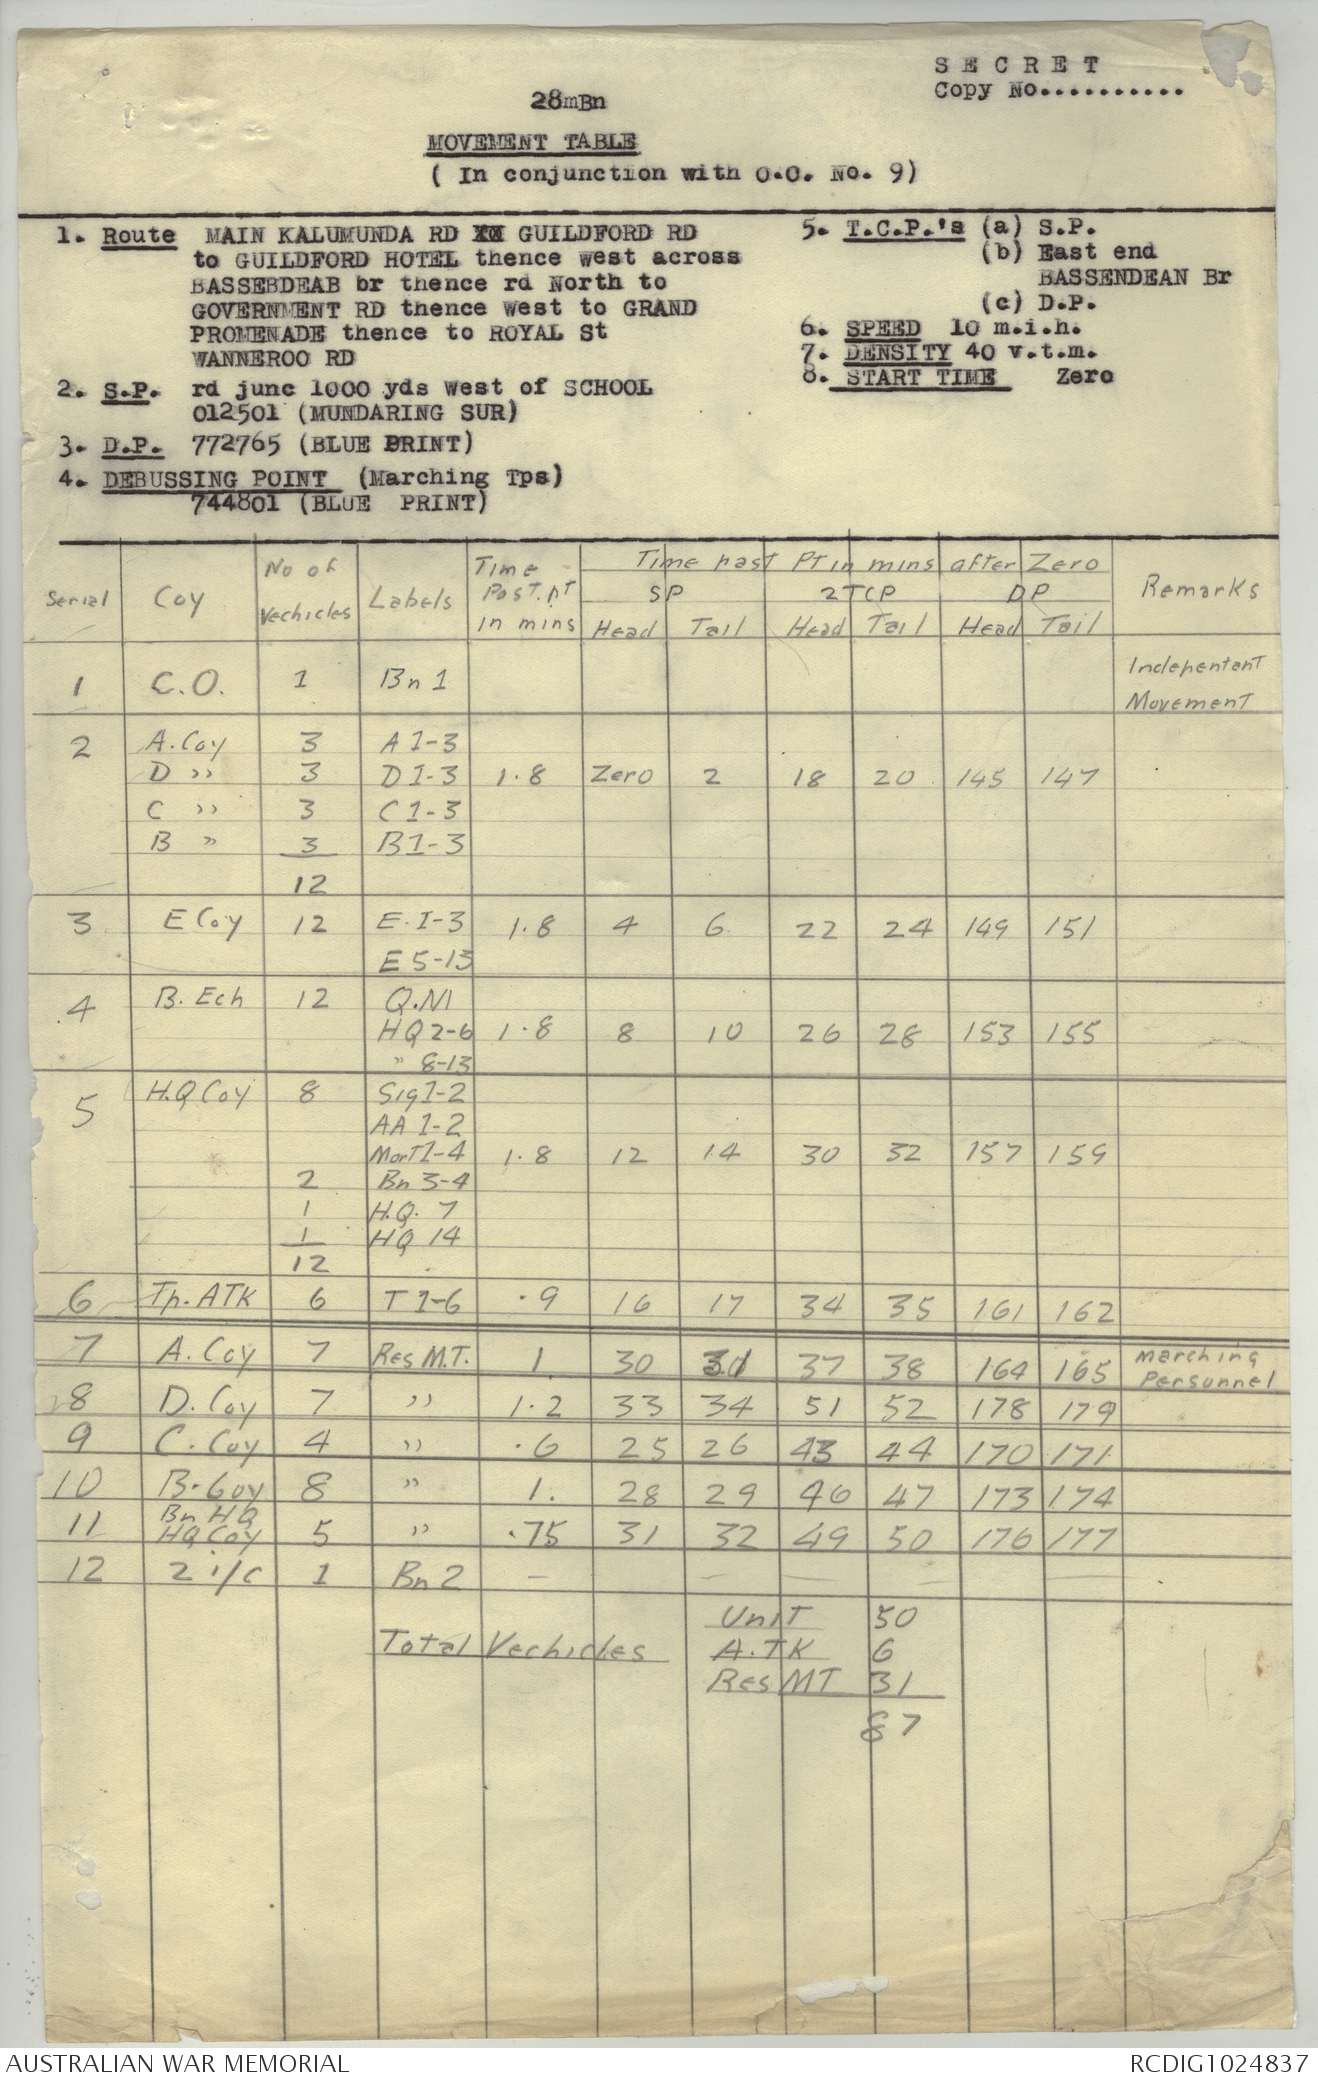 S E C R E T
Copy No...........
28mBn
MOVEMENT TABLE
( In conjunction with O.O. No. 9)
1. Route MAIN KALUMUNDA RD GUILDFORD RD
to GUILDFORD HOTEL thence west across
BASSEBDEAB br thence rd North to
GOVERNMENT RD thence west to GRAND
PROMENADE thence to ROYAL St
WANNEROO RD
2. S.P. rd junc 1000 yds west of SCHOOL
012501 (MUNDARING SUR)
3. D.P. 772765 (BLUE PRINT)
4. DEBUSSING POINT (Marching Tps)
744801 (BLUE PRINT)
5. T.C.P.'s (a) S.P.
(b) East end
BASSENDEAN Br
(c) D.P.
6. SPEED 10 m.i.h.
7. DENSITY 40 v.t.m.
8. START TIME Zero
Serial Coy No of Vechicles Labels Time Past.Pt in mins Time past Pt in mins after Zero Remarks
SP 2TCP DP
Head Tail Head Tail Head Tail
1 C.O. 1 Bn 1 Indepentant
Movement
2 A. Coy 3 A 1-3
D " 3 D 1-3 1.8 Zero 2 18 20 145 147
C " 3 C 1-3
B " 3 B 1-3
12
3 E Coy 12 E. 1-3 1.8 4 6 22 24 149 151
E 5-13
4 B. Ech 12 Q.M
HQ 2-6 1.8 8 10 26 28 153 155
" 8-13
5 H.Q Coy 8 Sig 1-2
AA 1-2
Mort 1-4 1.8 12 14 30 32 157 159
2 Bn 3-4
1 H.Q. 7
1 HQ 14
12
6 Tp. ATK 6 T 1-6 .9 16 17 34 35 161 162
7 A. Coy 7 Res M.T. 1. 30 31 37 38 164 165 Marching
Personnel
8 D. Coy 7 " 1.2 33 34 51 52 178 179
9 C. Coy 4 " .6 25 26 43 44 170 171
10 B. Coy 8 " 1. 28 29 46 47 173 174
11 Bn HQ
HQ Coy 5 " .75 31 32 49 50 176 177
12 2 i/c 1 Bn 2 — — — — —
Total Vechicles Unit 50
A.TK 6
Res MT 31
87
AUSTRALIAN WAR MEMORIAL
RCDIG1024837